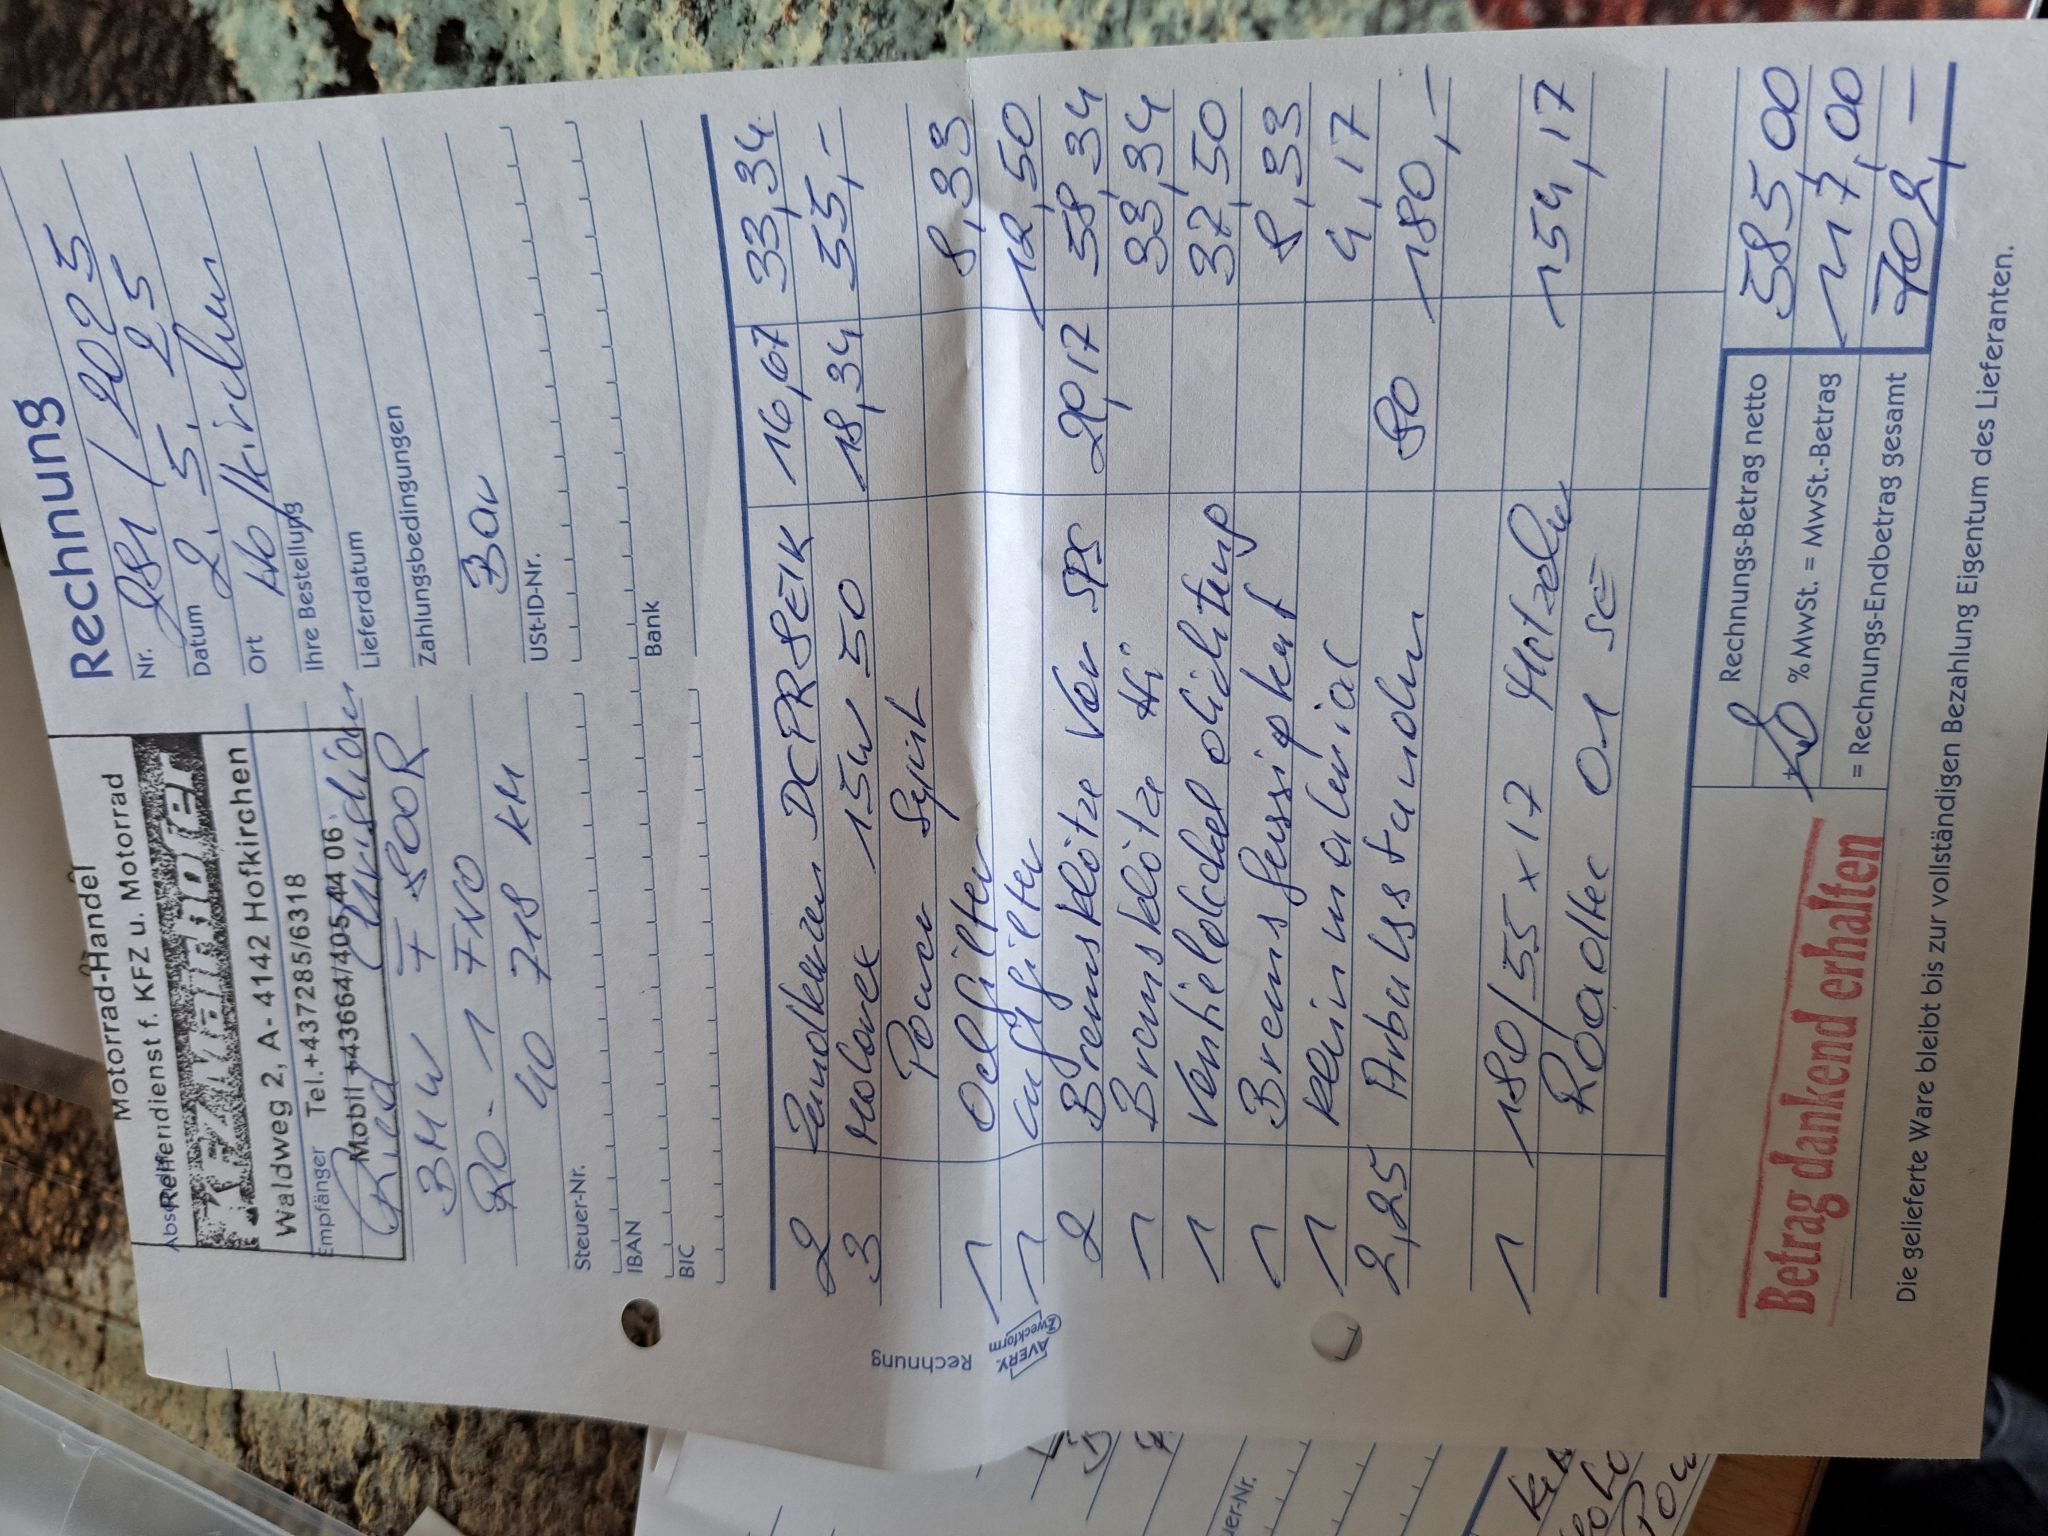 Motorrad-Handel
Reifendienst f. KFZ u. Motorrad
Waldweg 2, A- 4142 Hofkirchen
Tel.+437285/6318
Mobil +43664/405 44 06
Empfänger
Ried Christian
BMW F 800R
RO-1 FNO
40 718 KM
Steuer-Nr.
IBAN
BIC
Rechnung
Nr. 281 / 2025
Datum 2. 5. 25
Ort Hofkirchen
Ihre Bestellung
Lieferdatum
Zahlungsbedingungen
Bar
USt-ID-Nr.
Bank
2 Zündkerzen DCPR8EIK 16,67 33,34
3 Motorex 15W50 18,34 55,-
Power Synt.
1 Oelfilter 8,33
1 Luftfilter 12,50
2 Bremsklötze Vor SPS 29,17 58,34
1 Bremsklötze Hi 33,34
1 Ventieldeckel dichtung 37,50
1 Bremsflüssigkeit 8,33
1 Kleinmaterial 4,17
2,25 Arbeitsstunden 80 180,-
1 180/55x17 Metzeler 154,17
Roadtec 01 SE
Rechnungs-Betrag netto 585,00
+ 20 % MwSt. = MwSt.-Betrag 117,00
= Rechnungs-Endbetrag gesamt 702,-
Betrag dankend erhalten
Die gelieferte Ware bleibt bis zur vollständigen Bezahlung Eigentum des Lieferanten.
Rechnung
AVERY
Zweckform